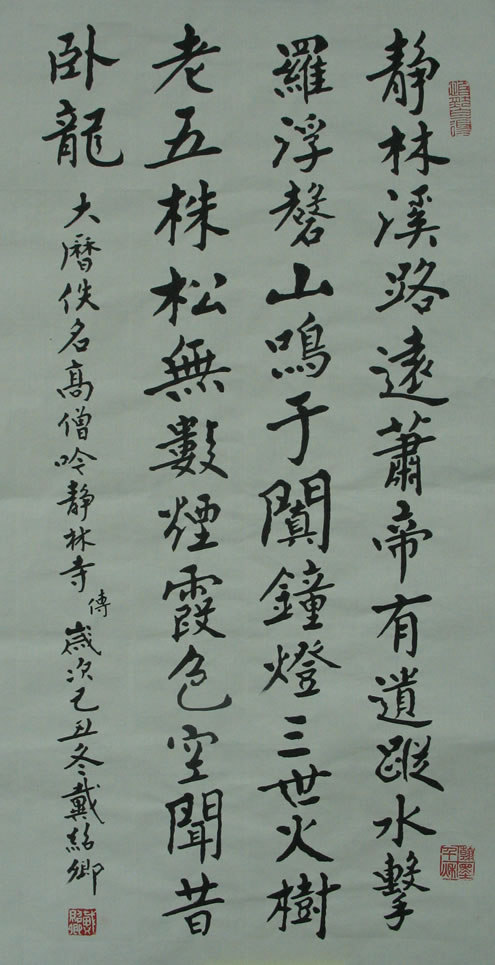 静林溪路遠蕭帝有遺蹤水擊
羅浮磬山鳴于闐鐘燈三世火樹
老五株松無數煙霞色空聞昔
卧龍
大曆佚名高僧吟靜林寺
傳
歲次己丑冬戴紹卿